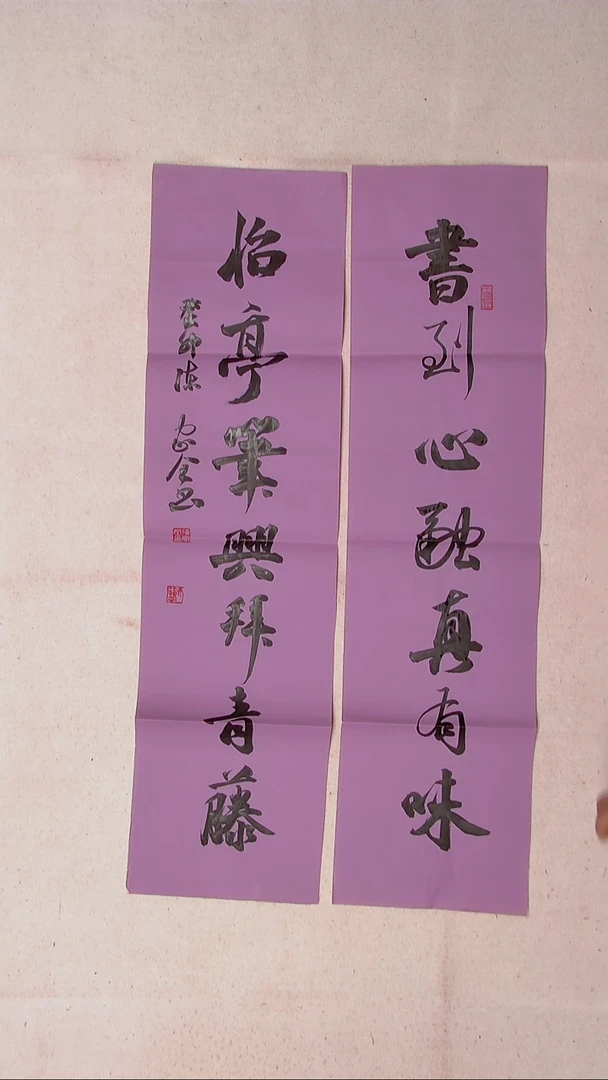 書到心融真有味
怡亭筆興拜青藤
癸卯陈